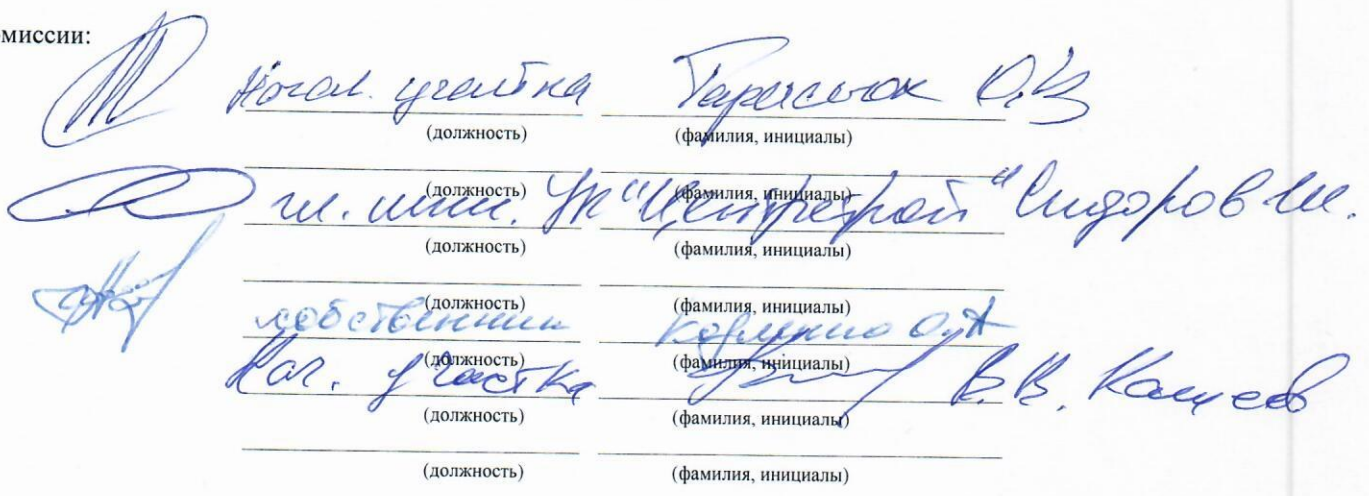 миссии:
Начал. участка Тарасюк О.В
(должность) (фамилия, инициалы)
(должность) (фамилия, инициалы)
гл. инж. УК "Центрстрой" Сидоров
(должность) (фамилия, инициалы)
(должность) (фамилия, инициалы)
собственник
(должность) (фамилия, инициалы)
Нач. участка В.В.
(должность) (фамилия, инициалы)
(должность) (фамилия, инициалы)